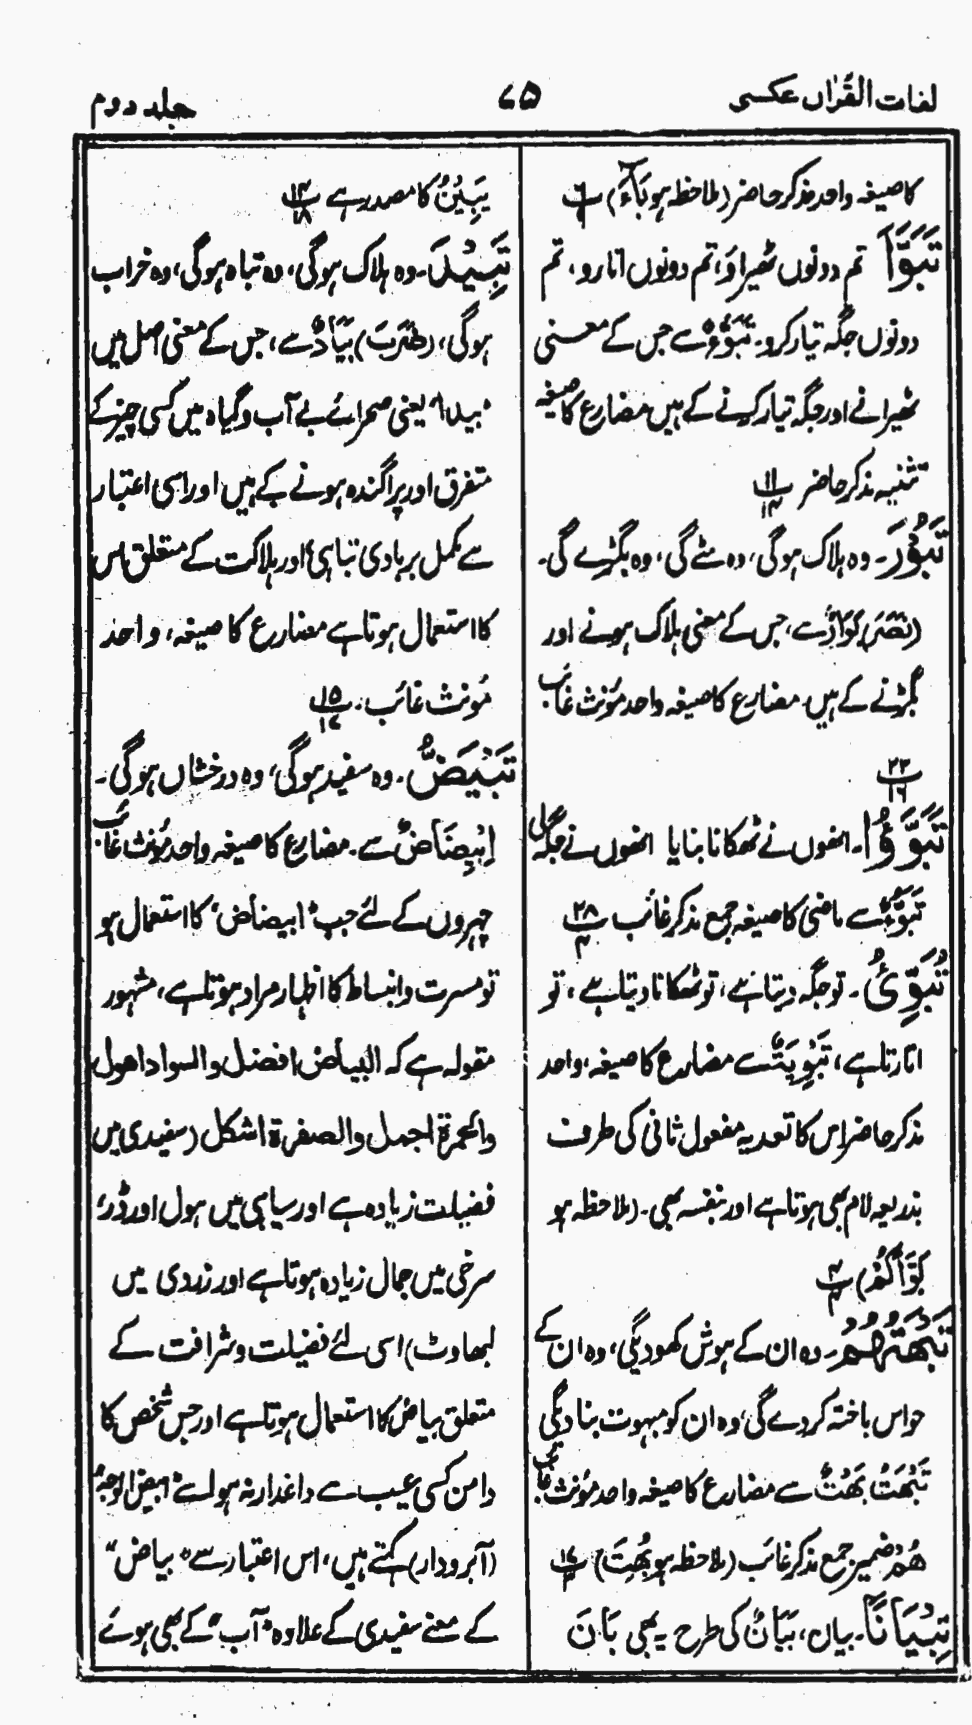 لغات القرآن عکسی
۷۵
جلد دوم
کا صیغہ واحد مذکر حاضر (ملاحظہ ہو بَاءَ) پ
تَبَوَّاٰ تم دونوں ٹھیراؤ، تم دونوں اتارو، تم
دونوں جگہ تیار کرو۔ تَبَوُّءٌ سے جس کے معنی
ٹھیرانے اور جگہ تیار کرنے کے ہیں مضارع کا صیغہ
تثنیہ مذکر حاضر پ ۱۱/۱۴
تَبُوْرَ۔ وہ ہلاک ہوگی، وہ مٹے گی، وہ بگڑے گی۔
(نَصَرَ) بَوَارٌ سے، جس کے معنی ہلاک ہونے اور
بگڑنے کے ہیں۔ مضارع کا صیغہ واحد مؤنث غائب
پ ۲۲/۱۶
تَبَوَّؤُا۔ انھوں نے ٹھکانا بنایا انھوں نے جگہ لی
تَبَوُّءٌ سے ماضی کا صیغہ جمع مذکر غائب پ ۲۸/۴
تُبَوِّئُ۔ تو جگہ دیتا ہے، تو ٹھکانا دیتا ہے، تو
اتارتا ہے، تَبْوِیَتٌ سے مضارع کا صیغہ، واحد
مذکر حاضر اس کا تعدیہ مفعول ثانی کی طرف
بذریعہ لام بھی ہوتا ہے اور بنفسہ بھی۔ (ملاحظہ ہو
بَوَّاَکُمْ) پ ۴/۴
تَبْهَتُهُمْ۔ وہ ان کے ہوش کھو دیگی، وہ ان کے
حواس باختہ کردے گی، وہ ان کو مبہوت بنا دیگی
تَبْهَتُ بَهْتٌ سے مضارع کا صیغہ واحد مؤنث غائب
هُمْ ضمیر جمع مذکر غائب (ملاحظہ ہو بُهِتَ) پ ۱۷
تِبْیَانًا۔ بیان، بَیَانٌ کی طرح یہ بھی بَانَ
یَبِیْنُ کا مصدر ہے پ ۱۴/۱۸
تَبِیْدَ۔ وہ ہلاک ہوگی، وہ تباہ ہوگی، وہ خراب
ہوگی، (ضَرَبَ) بَیَادٌ سے، جس کے معنی اصل میں
"بیداء" یعنی صحرائے بے آب و گیاہ میں کسی چیز کے
متفرق اور پراگندہ ہونے کے ہیں اور اسی اعتبار
سے مکمل بربادی تباہی اور ہلاکت کے متعلق اس
کا استعمال ہوتا ہے مضارع کا صیغہ، واحد
مؤنث غائب۔ پ ۱۵/۱۷
تَبْیَضُّ۔ وہ سفید ہوگی، وہ درخشاں ہوگی۔
اِبْیِضَاضٌ سے۔ مضارع کا صیغہ واحد مؤنث غائب
چہروں کے لئے جب "ابیضاض" کا استعمال ہو
تو مسرت و انبساط کا اظہار مراد ہوتا ہے، مشہور
مقولہ ہے کہ البیاض افضل والسواد اھول
والحمرة اجمل والصفرة اشکل (سفیدی میں
فضیلت زیادہ ہے اور سیاہی میں ہول اور ڈر،
سرخی میں جمال زیادہ ہوتا ہے اور زردی میں
لبھاوٹ) اسی لئے فضیلت و شرافت کے
متعلق بیاض کا استعمال ہوتا ہے اور جس شخص کا
دامن کسی عیب سے داغدار نہ ہو اسے ابیض الوجہ
(آبرودار) کہتے ہیں، اس اعتبار سے "بیاض"
کے معنے سفیدی کے علاوہ "آب" کے بھی ہوئے